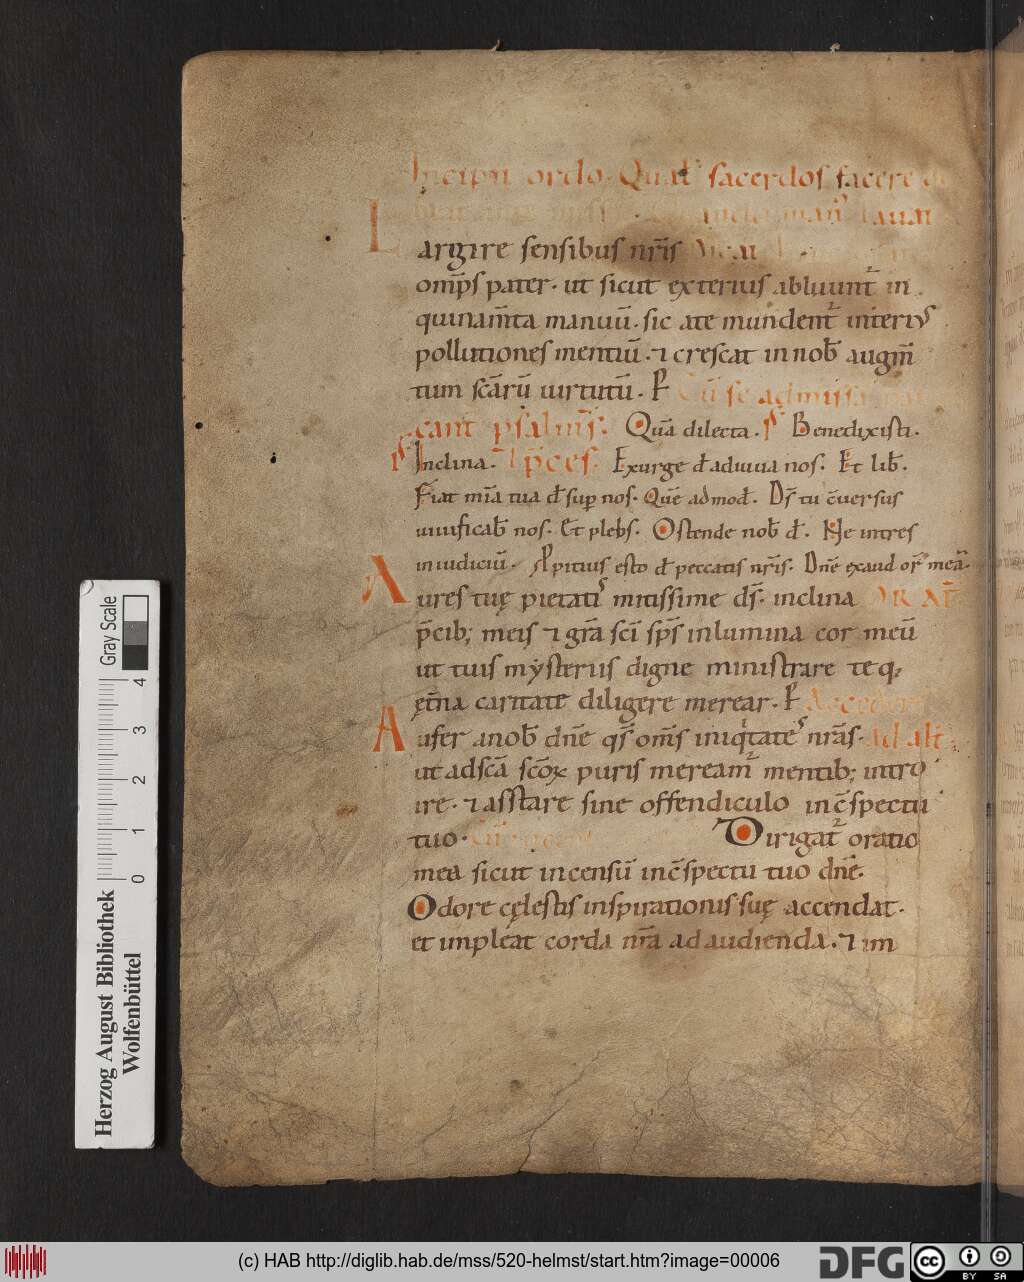 Incipit ordo. Qualit̄ sacerdos facere
manꝰ lauat
Largire sensibus nr̄is
om̄ps pater. ut sicut exterius abluunt᷑ in
quinam̄ta manuū. sic ate mundent᷑ interiꝰ
pollutiones mentiū. ⁊ crescat in nob̄ augm̄
tum sc̄arū uirtutū. P᷑ Cū se admissa
cant psalmꝭ. Quā dilecta. p̄s Benedixisti.
p̄s Inclina. p̄ces. Exurge d̄ adiuua nos. Et lib̄.
Fiat mīa tua d̄ sup̱ nos. Quē admod̄. Ds̄ tu c̄uersus
uiuificab̄ nos. Et plebs. Ostende nob̄ d̄. Ne intres
in iudiciū. Ꝓpitius esto d̄ peccatis nr̄is. Dn̄e exaud or̄ meā.
Aures tuę pietatiꝰ mitissime ds̄. inclina ORAT̄
p̄cib; meis ⁊ gr̄a sc̄i sp̄s inlumina cor meū
ut tuis mẏsteriis digne ministrare te q;
ęt̄na caritate diligere merear. P᷑ Accedens
Aufer anob̄ dn̄e qs̄ om̄s iniq̇tateꝰ nr̄as. ad alt̄
ut adsc̄a sc̄oꝝ puris meream᷑ mentib; intro
ire. ⁊ asstare sine offendiculo inc̄spectu
tuo. Dirigat᷑ oratio
mea sicut incensū inc̄spectu tuo dn̄e.
Odore cęlestis inspirationis suę accendat.
et impleat corda nr̄a ad audienda. ⁊ im
Gray Scale
0 1 2 3 4
Herzog August Bibliothek
Wolfenbüttel
(c) HAB http://diglib.hab.de/mss/520-helmst/start.htm?image=00006
DFG
cc BY SA